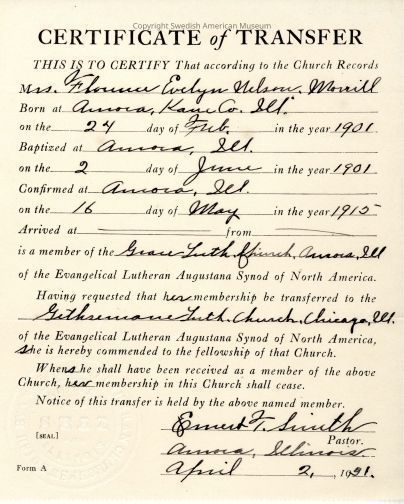 Copyright Swedish American Museum
CERTIFICATE of TRANSFER
THIS IS TO CERTIFY That according to the Church Records
Mrs. Florence Evelyn Nelson, Morrill
Born at Aurora, Kane Co. Ill.
on the 24 day of Feb. in the year 1901
Baptized at Aurora, Ill.
on the 2 day of June in the year 1901
Confirmed at Aurora, Ill.
on the 16 day of May in the year 1915
Arrived at from
is a member of the Grace Luth. Church, Aurora, Ill
of the Evangelical Lutheran Augustana Synod of North America.
Having requested that her membership be transferred to the
Gethsemane Luth. Church, Chicago, Ill.
of the Evangelical Lutheran Augustana Synod of North America,
she is hereby commended to the fellowship of that Church.
When she shall have been received as a member of the above
Church, her membership in this Church shall cease.
Notice of this transfer is held by the above named member.
Ernest T. Smith
[SEAL] Pastor.
Aurora, Illinois.
Form A April 2, 1921.